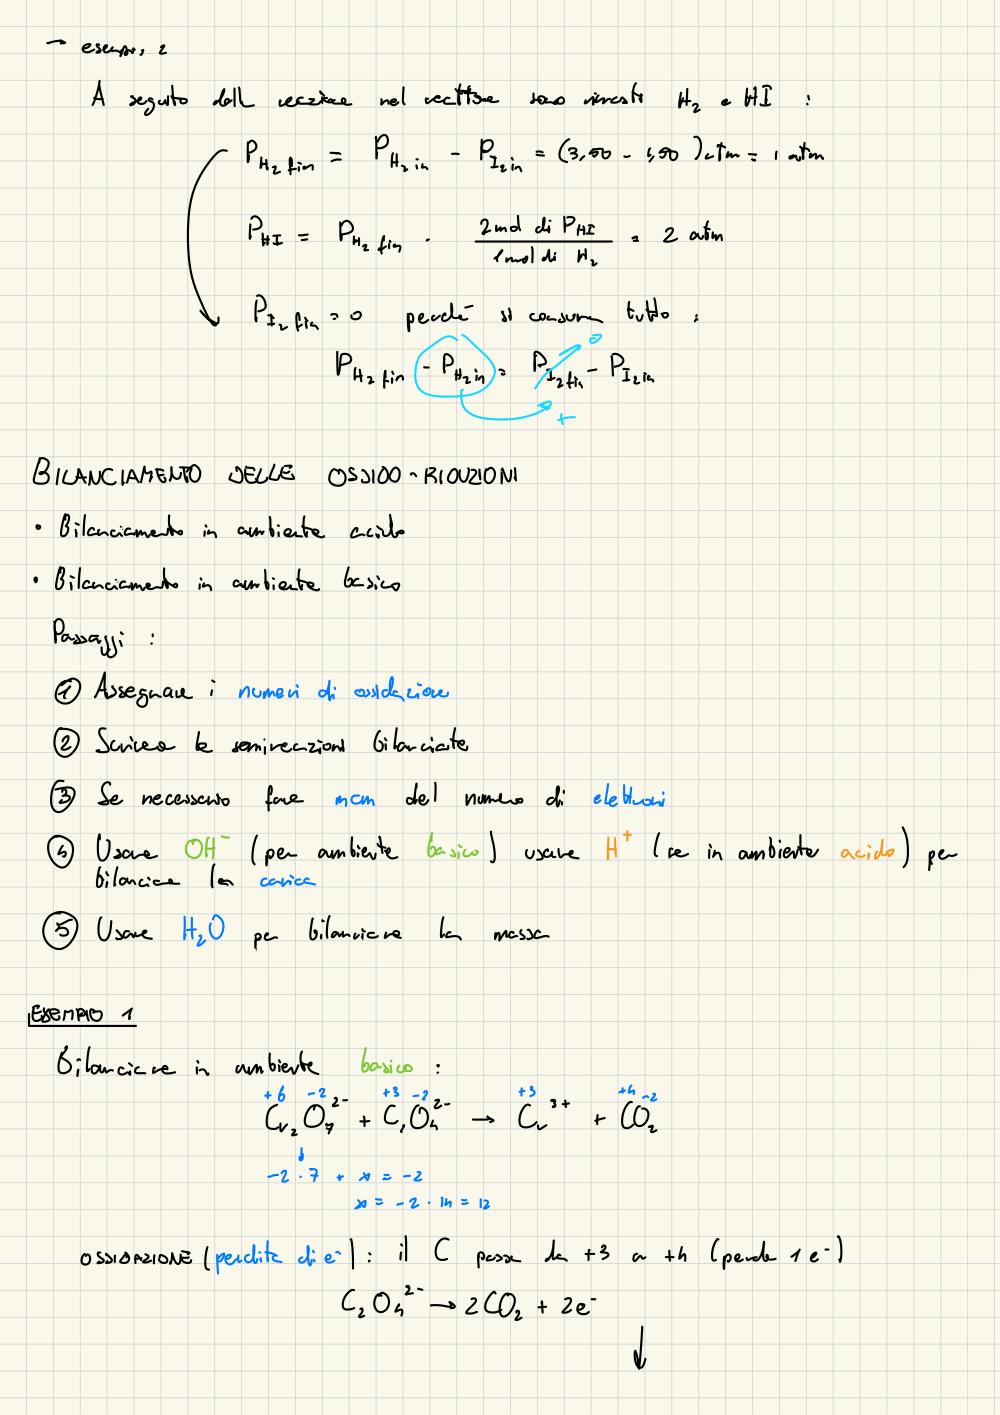 → esempio 2
A seguito della reazione nel reattore sono rimasti H₂ e HI :
P_H₂ fin = P_H₂ in - P_I₂ in = (3,50 - 2,50) atm = 1 atm
P_HI = P_H₂ fin · 2 mol di P_HI / 1 mol di H₂ = 2 atm
P_I₂ fin = 0 perché si consuma tutto :
P_H₂ fin - P_H₂ in = P_I₂ fin - P_I₂ in
0
+
BILANCIAMENTO DELLE OSSIDO-RIDUZIONI
• Bilanciamento in ambiente acido
• Bilanciamento in ambiente basico
Passaggi :
① Assegnare i numeri di ossidazione
② Scrivere le semireazioni bilanciate
③ Se necessario fare mcm del numero di elettroni
④ Usare OH⁻ (per ambiente basico) usare H⁺ (se in ambiente acido) per
bilanciare la carica
⑤ Usare H₂O per bilanciare la massa
ESEMPIO 1
Bilanciare in ambiente basico :
+6 -2 +3 -2 +3 +4 -2
Cr₂O₇²⁻ + C₂O₄²⁻ → Cr³⁺ + CO₂
-2 · 7 + x = -2
x = -2 · 14 = 12
OSSIDAZIONE (perdita di e⁻) : il C passa da +3 a +4 (perde 1 e⁻)
C₂O₄²⁻ → 2CO₂ + 2e⁻
↓